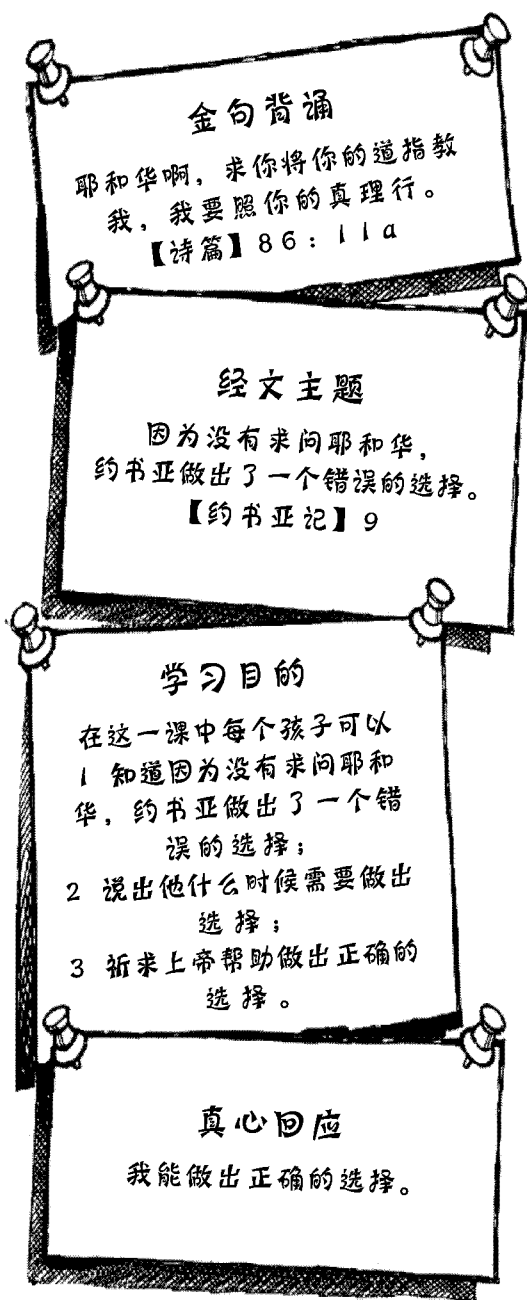 金句背诵
耶和华啊，求你将你的道指教
我，我要照你的真理行。
【诗篇】86：11a
经文主题
因为没有求问耶和华，
约书亚做出了一个错误的选择。
【约书亚记】9
学习目的
在这一课中每个孩子可以
1 知道因为没有求问耶和
华，约书亚做出了一个错
误的选择；
2 说出他什么时候需要做出
选择；
3 祈求上帝帮助做出正确的
选择。
真心回应
我能做出正确的选择。